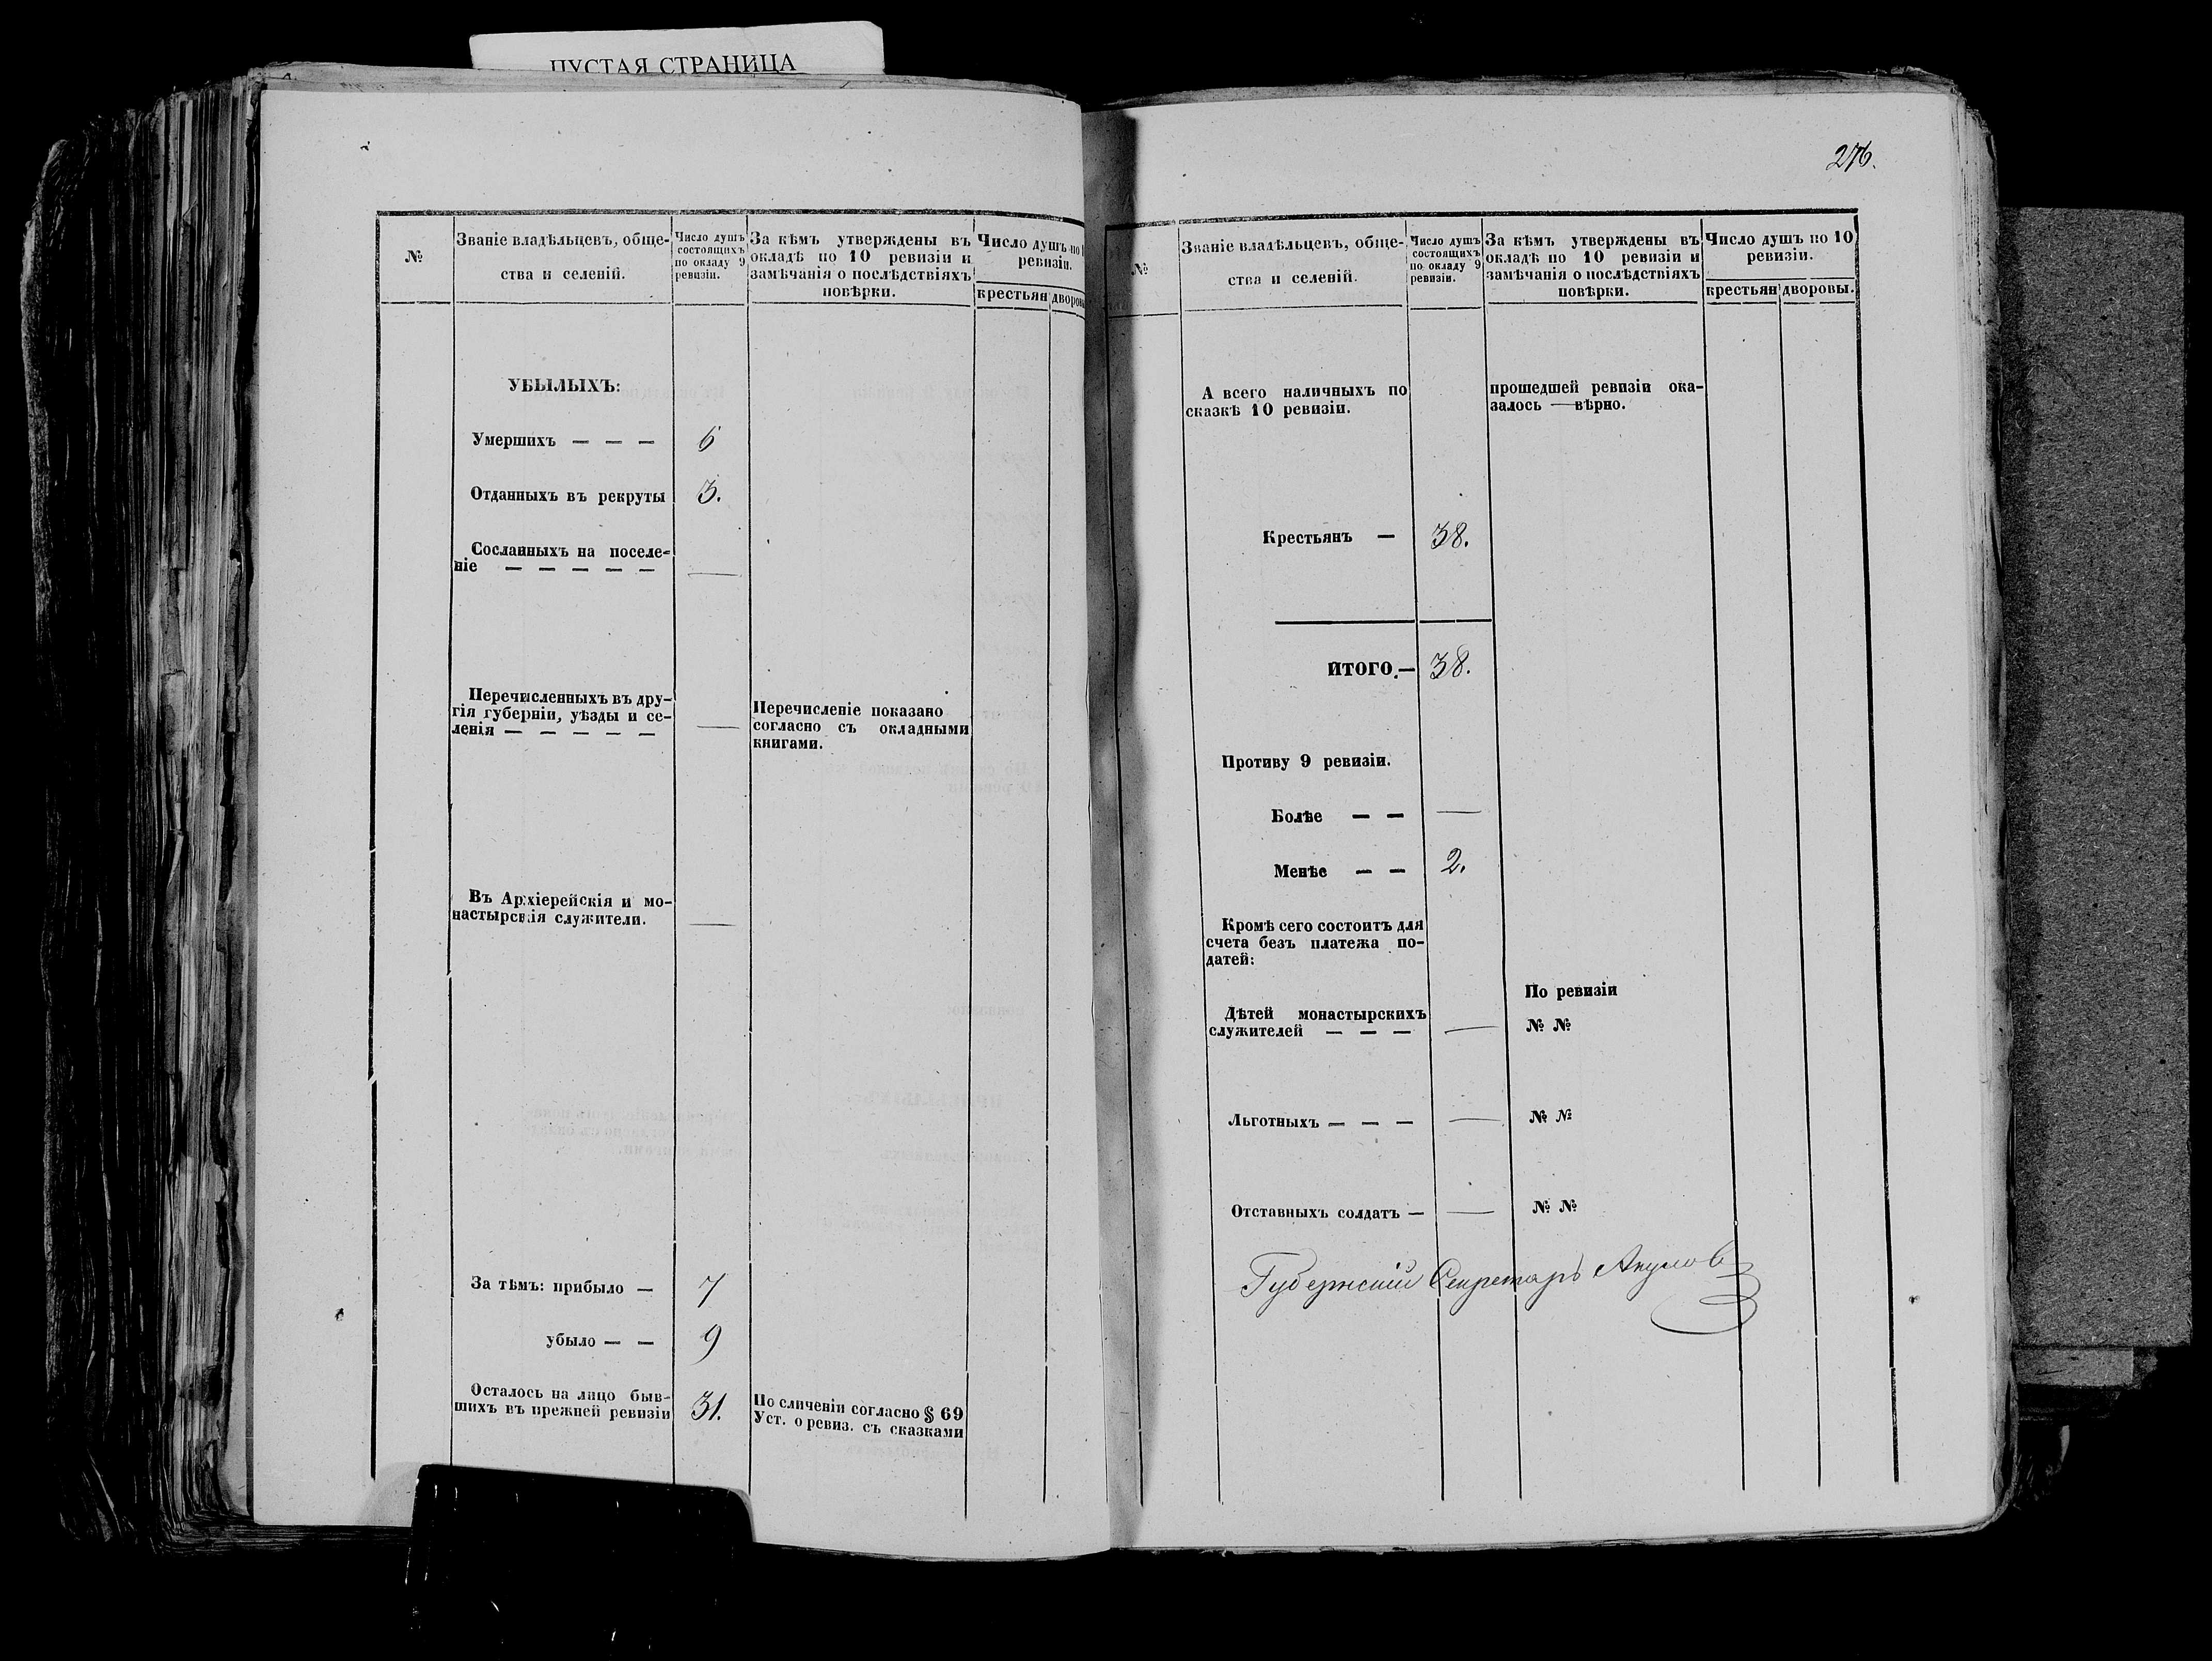 ПУСТАЯ СТРАНИЦА
№
Званіе владѣльцевъ, обще-
ства и селеній.
Число душъ
состоящихъ
по окладу 9
ревизіи.
За кѣмъ утверждены въ
окладѣ по 10 ревизіи и
замѣчанія о послѣдствіяхъ
повѣрки.
Число душъ по 1
ревизіи.
крестьян
дворовы
УБЫЛЫХЪ:
Умершихъ — — — 6
Отданныхъ въ рекруты 3.
Сосланныхъ на поселе-
ніе — — — — — —
Перечисленныхъ въ дру-
гія губерніи, уѣзды и се-
ленія — — — — — —
Перечисленіе показано
согласно съ окладными
книгами.
Въ Архіерейскія и мо-
настырскія служители. —
За тѣмъ: прибыло — 7
убыло — — 9
Осталось на лицо быв-
шихъ въ прежней ревизіи 31.
По сличеніи согласно § 69
Уст. о ревиз. съ сказками
276.
№
Званіе владѣльцевъ, обще-
ства и селеній.
Число душъ
состоящихъ
по окладу 9
ревизіи.
За кѣмъ утверждены въ
окладѣ по 10 ревизіи и
замѣчанія о послѣдствіяхъ
повѣрки.
Число душъ по 10
ревизіи.
крестьян
дворовы.
А всего наличныхъ по
сказкѣ 10 ревизіи.
прошедшей ревизіи ока-
залось — вѣрно.
Крестьянъ — 38.
ИТОГО.— 38.
Противу 9 ревизіи.
Болѣе — — —
Менѣе — — 2.
Кромѣ сего состоитъ для
счета безъ платежа по-
датей:
По ревизіи
Дѣтей монастырскихъ
служителей — — — — № №
Льготныхъ — — — — № №
Отставныхъ солдатъ — — № №
Губернскій Секретарь Акулов